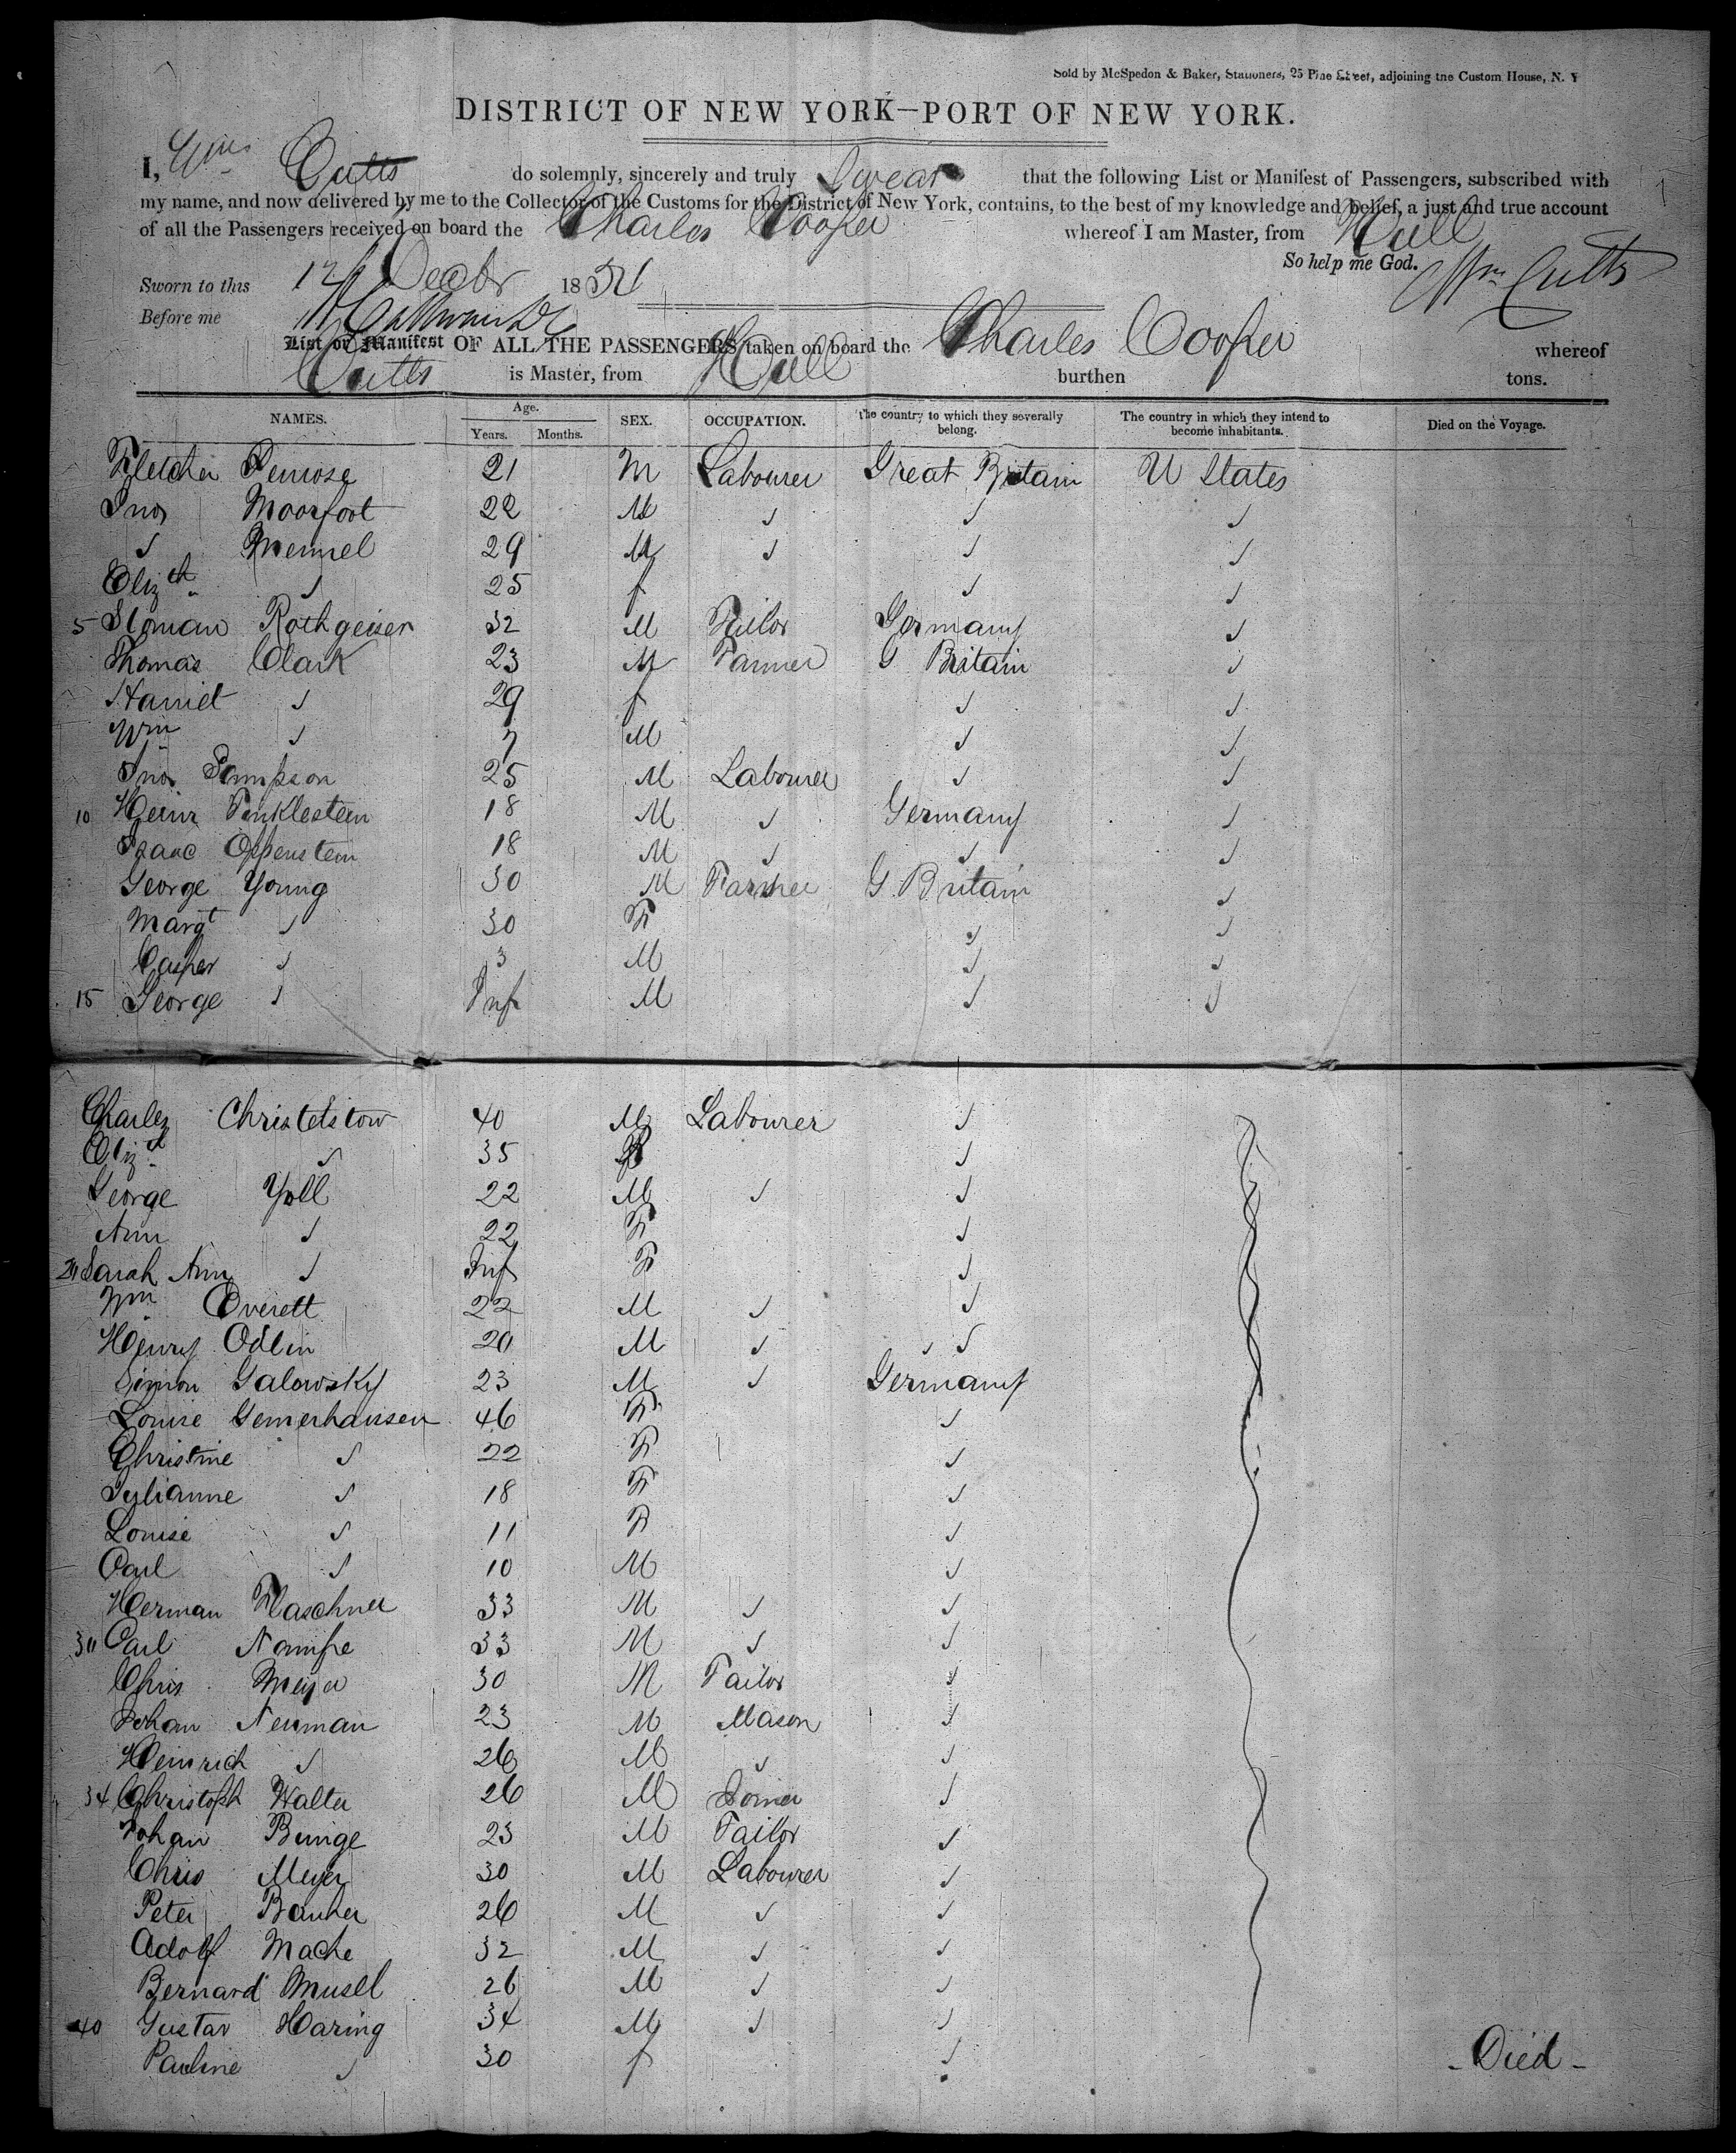 Sold by McSpedon & Baker, Stationers, 25 Pine Street, adjoining the Custom House, N. Y
DISTRICT OF NEW YORK—PORT OF NEW YORK.
I, Wm Cutts do solemnly, sincerely and truly Swear that the following List or Manifest of Passengers, subscribed with
my name, and now delivered by me to the Collector of the Customs for the District of New York, contains, to the best of my knowledge and belief, a just and true account
of all the Passengers received on board the Charles Cooper whereof I am Master, from Hull
So help me God. Wm Cutts
Sworn to this 12 Decbr 1854
Before me
List or Manifest OF ALL THE PASSENGERS taken on board the Charles Cooper whereof
Cutts is Master, from Hull burthen tons.
NAMES. Age. Years. Months. SEX. OCCUPATION. The country to which they severally belong. The country in which they intend to become inhabitants. Died on the Voyage.
Fletcher Penrose 21 M Labourer Great Britain U States
Jno Moorfoot 22 M " " "
" Mennel 29 M " " "
Elizth " 25 f " "
5 Sloman Rothgeiser 32 M Tailor Germany "
Thomas Clark 23 M Farmer G Britain "
Harriet " 29 f " "
Wm " 7 M " "
Jno Sampson 25 M Labourer " "
10 Heinr Finklestein 18 M " Germany "
Isaac Oppenstein 18 M " " "
George Young 30 M Farmer G. Britain "
Margt " 30 F " "
Casper " 3 M " "
15 George " Inf M " "
Charles Christelstow 40 M Labourer "
Elizth " 35 F "
George Yoll 22 M " "
Ann " 22 F "
20 Sarah Ann " Inf F "
Wm Everett 22 M " "
Henry Odlin 20 M " "
Simon Galowsky 23 M " Germany
Louise Gemerhausen 46 F "
Christine " 22 F "
Julianne " 18 F "
Louise " 11 F "
Carl " 10 M "
Herman Flaschner 33 M " "
30 Carl Nampe 33 M " "
Chris Meyer 30 M Tailor "
Johan Neuman 23 M Mason "
Heinrich " 26 M " "
34 Christoph Walter 26 M Joiner "
Johan Bunge 23 M Tailor "
Chris Meyer 30 M Labourer "
Peter Banker 26 M " "
Adolf Mache 32 M " "
Bernard Musell 26 M " "
40 Gustav Haring 34 M " "
Pauline " 30 f " - Died -